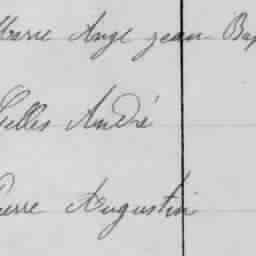 Marie Ange jean Bap
Gilles André
Pierre Augustin